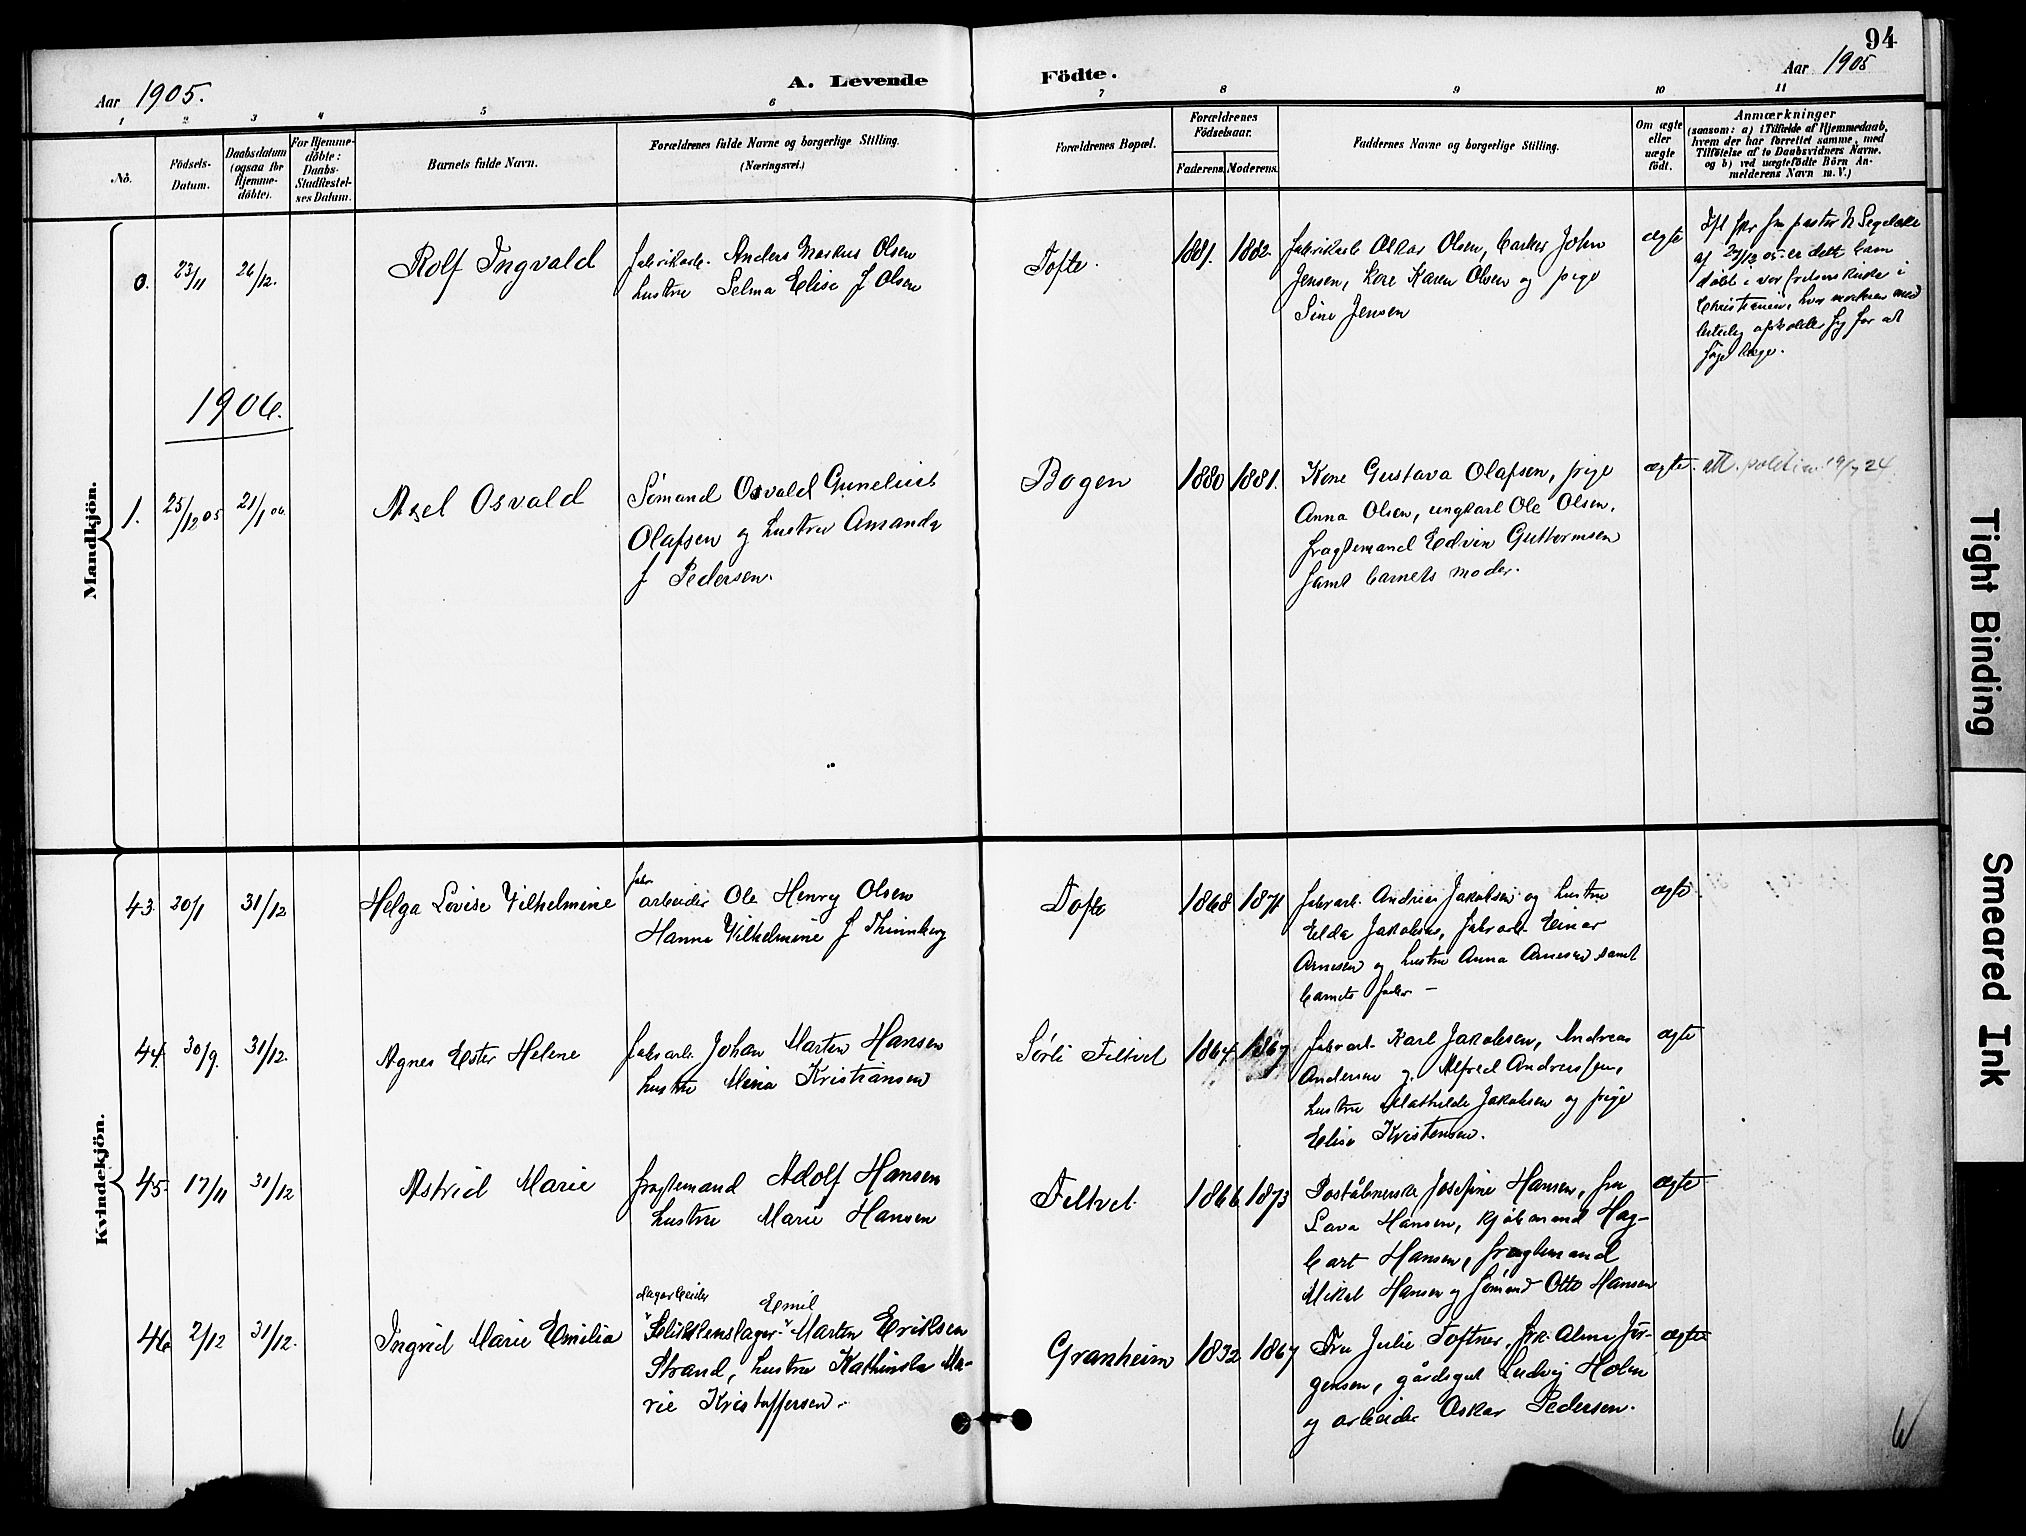 94
Aar 1905.
A. Levende Födte.
Aar 1905
1 2 3 4 5 6 7 8 9 10 11
No.
Födsels-
Datum.
Daabsdatum
(ogsaa for
Hjemme-
döbte).
For Hjemme-
döbte:
Daabs-
Stadfæstel-
ses Datum.
Barnets fulde Navn.
Forældrenes fulde Navne og borgerlige Stilling.
(Næringsvei.)
Forældrenes Bopæl.
Forældrenes
Födselsaar.
Faderens. Moderens.
Faddernes Navne og borgerlige Stilling.
Om ægte
eller
uægte
födt.
Anmærkninger
(saasom: a) i Tilfælde af Hjemmedaab,
hvem der har forrettet samme, med
Tilföielse af to Daabsvidners Navne,
og b) ved uægtefödte Börn An-
melderens Navn m. V.)
Mandkjön.
0. 23/11 26/12.
Rolf Ingvald
fabrikarb. Anders Markus Olsen
hustru Selma Elise f Olsen
Tofte.
1881. 1882.
fabrikarb Oskar Olsen, barker John
Jensen, kone Karen Olsen og pige
Sine Jensen
ægte
Ifl skr fra pastor N Segelcke
af 27/12 05 er dette barn
døbt i vor frelsers kirke i
Christiania, hvor moderen med
opholdt sig for at
søge læge.
1906.
1. 25/12 05 21/1 06
Axel Osvald
Sømand Osvald Gunelius
Olafsen og hustru Amanda
f Pedersen.
Bogen
1880 1881.
Kone Gustava Olafsen, pige
Anna Olsen, ungkarl Ole Olsen,
fragtemand Edvin Guttormsen
samt barnets moder.
ægte.
att. politiet 19/7 24
Kvindekjön.
43 30/1 31/12
Helga Lovise Vilhelmine
fabr
arbeider Ole Henry Olsen
Hanna Vilhelmine f Thinnberg
Tofte
1868 1871
fabrarb. Andreas Jakobsen og hustru
Elda Jakobsen, fabrarb. Einar
Arnesen og hustru Anna Arnesen samt
barnets fader –
ægte
44. 30/9. 31/12.
Agnes Ester Helene
fabrarb. Johan Martin Hansen
hustru Mina Kristiansen
Sørli Filtvet
1864. 1867
fabrarb. Karl Jakobsen, Andreas
Andersen og Alfred Andreassen,
hustru Mathilde Jakobsen og pige
Elise Kristensen.
ægte
45. 17/11 31/12
Astrid Marie
fragtemand Adolf Hansen
hustru Marie Hansen
Filtvet
1866 1873
Poståbnerske Josefine Hansen, fru
Lava Hansen, kjøbmand Hag-
bart Hansen, fragtemand
Mikal Hansen og sømand Otto Hansen
ægte
46 2/12 31/12.
Ingrid Marie Emilia
dagarbeider
"Slikkenslager" Emil Martin Eriksen
Strand, hustru Kathinka Ma-
rie Kristoffersen.
Granheim
1832 1867
Fru Julie Toftner, frk. Alma Jør-
gensen, gårdsgut Ludvig Holm
og arbeider Oskar Pedersen.
ægte
Tight Binding
Smeared Ink